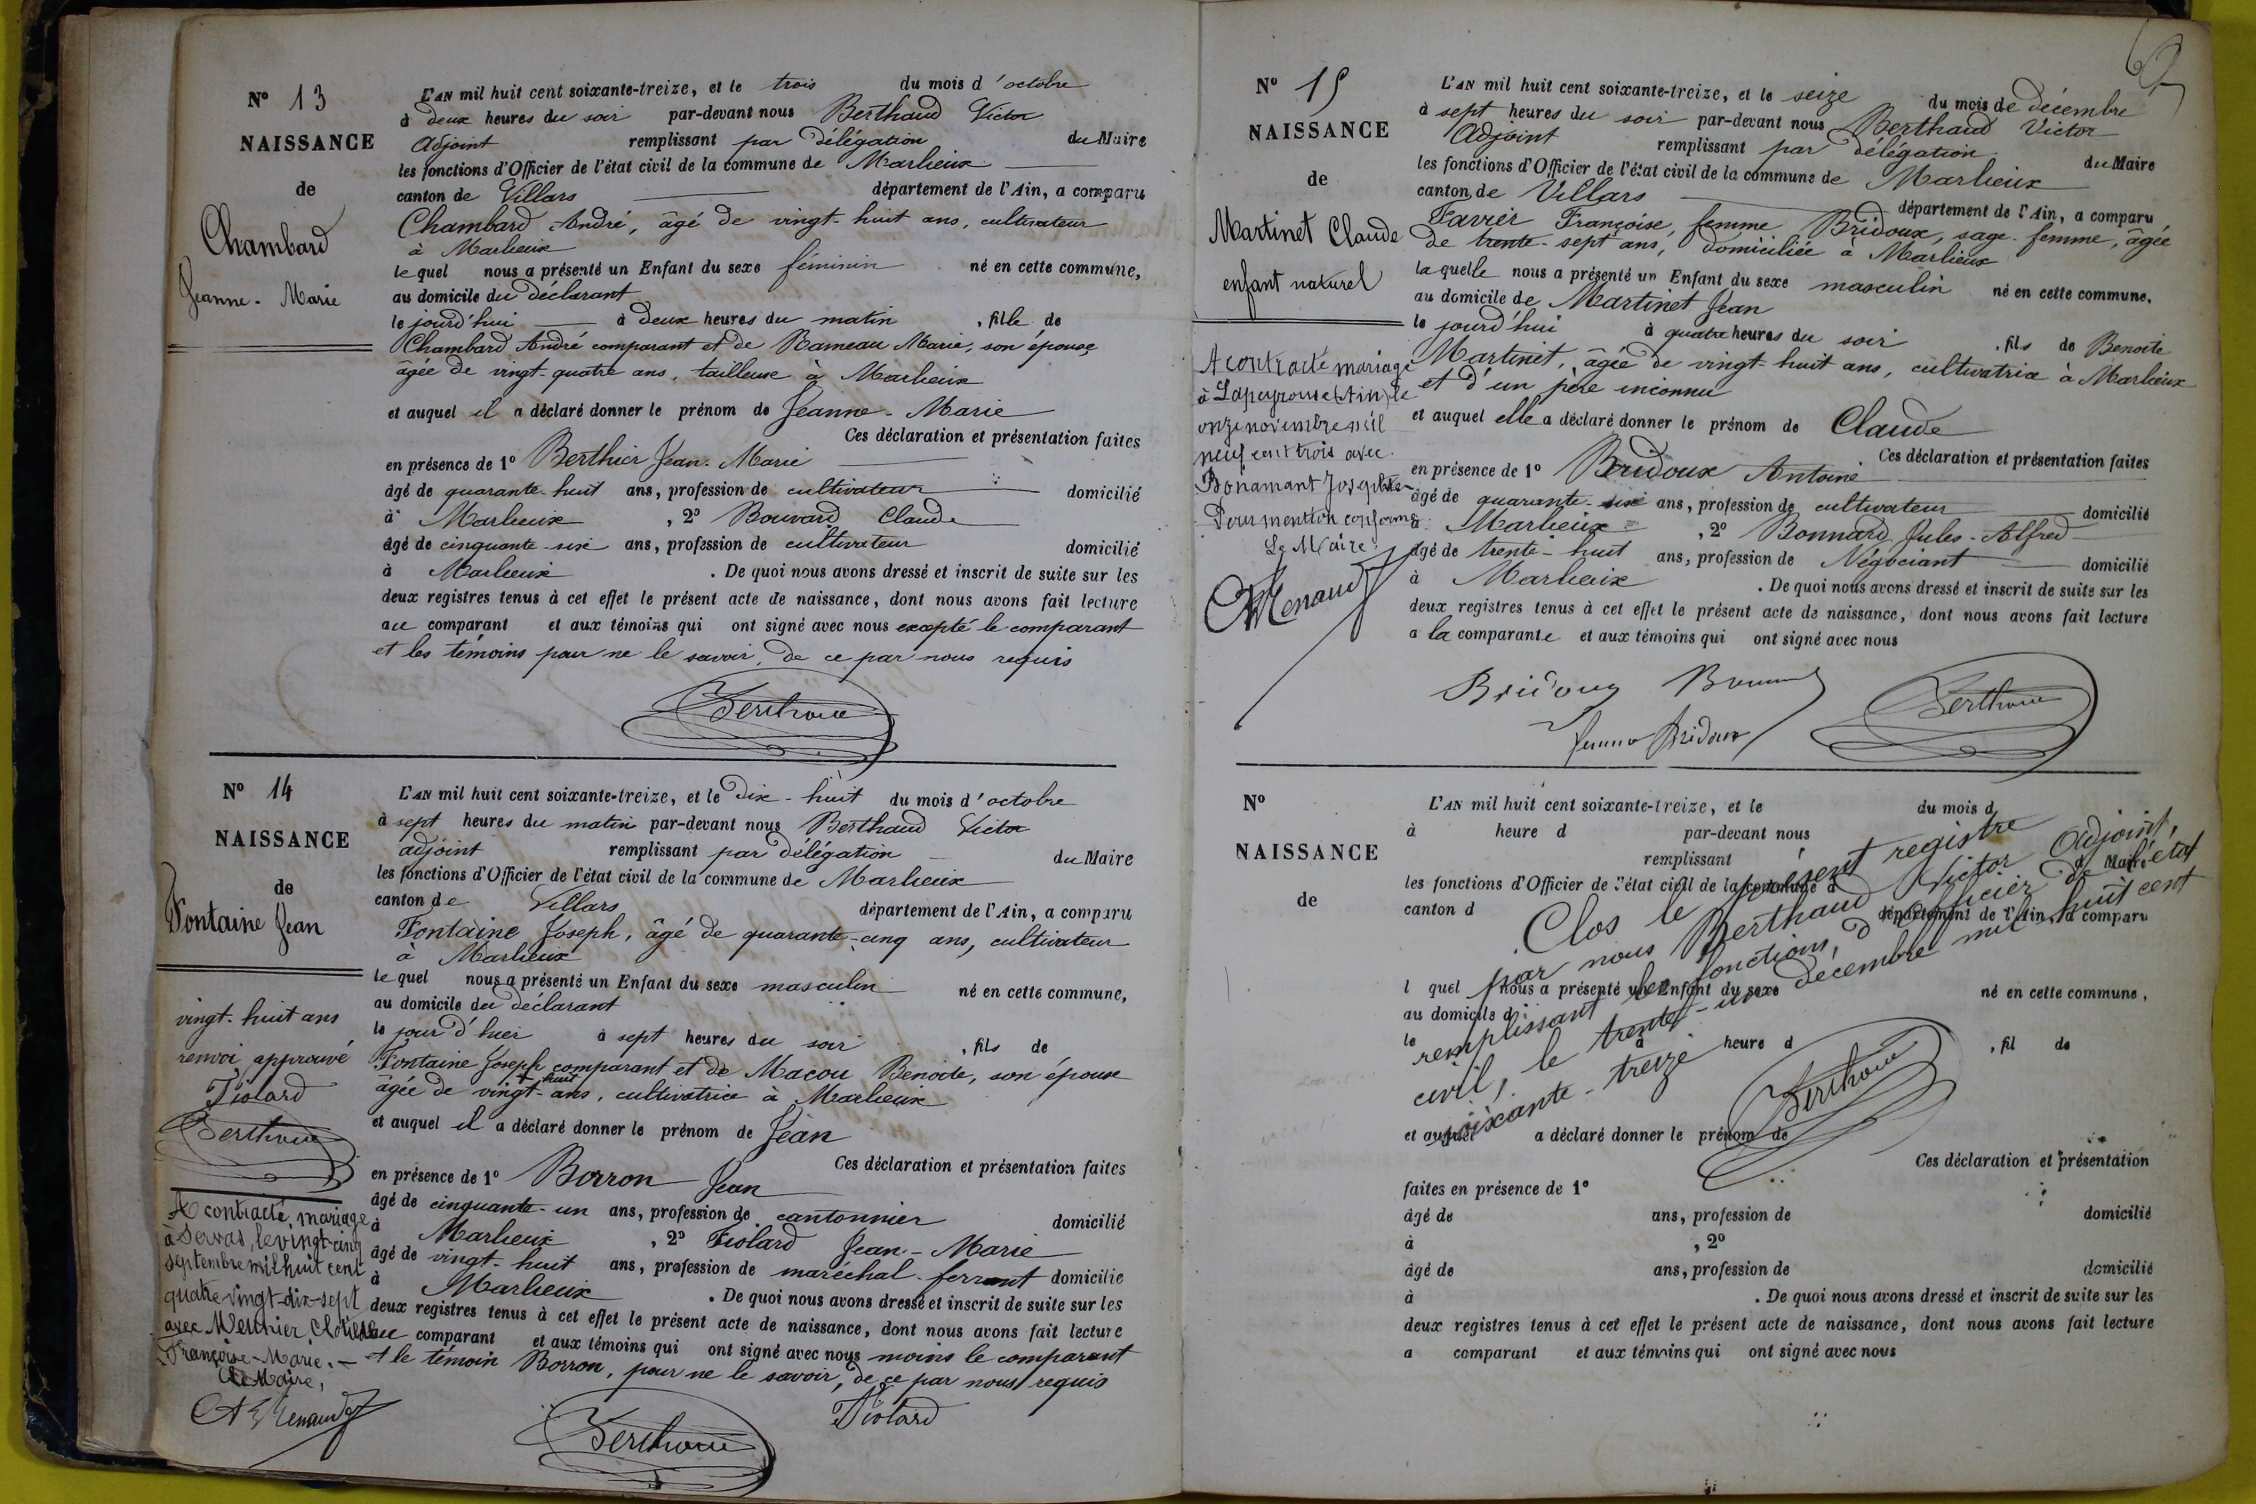 N° 13
NAISSANCE
de
Chambard
Jeanne-Marie
L'AN mil huit cent soixante-treize, et le trois du mois d'octobre
à deux heures du soir par-devant nous Berthaud Victor
Adjoint remplissant par délégation du Maire
les fonctions d'Officier de l'état civil de la commune de Marlieux
canton de Villars département de l'Ain, a comparu
Chambard André, âgé de vingt-huit ans, cultivateur
à Marlieux
lequel nous a présenté un Enfant du sexe féminin né en cette commune,
au domicile du déclarant
le jourd'hui à deux heures du matin, fille de
Chambard André comparant et de Rameau Marie, son épouse
âgée de vingt-quatre ans, tailleuse à Marlieux
et auquel il a déclaré donner le prénom de Jeanne-Marie
Ces déclaration et présentation faites
en présence de 1° Berthier Jean-Marie
âgé de quarante-huit ans, profession de cultivateur domicilié
à Marlieux, 2° Bouvard Claude
âgé de cinquante-six ans, profession de cultivateur domicilié
à Marlieux. De quoi nous avons dressé et inscrit de suite sur les
deux registres tenus à cet effet le présent acte de naissance, dont nous avons fait lecture
au comparant et aux témoins qui ont signé avec nous excepté le comparant
et les témoins pour ne le savoir, de ce par nous requis
Berthaud
N° 14
NAISSANCE
de
Fontaine Jean
vingt-huit ans
renvoi approuvé
Fiolard
Berthaud
A contracté mariage
à Servas, le vingt-cinq
septembre mil huit cent
quatre-vingt-dix-sept
avec Meunier Clotilde
Françoise-Marie.
Le Maire,
L'AN mil huit cent soixante-treize, et le dix-huit du mois d'octobre
à sept heures du matin par-devant nous Berthaud Victor
adjoint remplissant par délégation du Maire
les fonctions d'Officier de l'état civil de la commune de Marlieux
canton de Villars département de l'Ain, a comparu
Fontaine Joseph, âgé de quarante-cinq ans, cultivateur
à Marlieux
lequel nous a présenté un Enfant du sexe masculin né en cette commune,
au domicile du déclarant
le jour d'hier à sept heures du soir, fils de
Fontaine Joseph comparant et de Macou Benoite, son épouse
huit
âgée de vingt-ans, cultivatrice à Marlieux
et auquel il a déclaré donner le prénom de Jean
Ces déclaration et présentation faites
en présence de 1° Borron Jean
âgé de cinquante-un ans, profession de cantonnier domicilié
à Marlieux, 2° Fiolard Jean-Marie
âgé de vingt-huit ans, profession de maréchal-ferrant domicilié
à Marlieux. De quoi nous avons dressé et inscrit de suite sur les
deux registres tenus à cet effet le présent acte de naissance, dont nous avons fait lecture
au comparant et aux témoins qui ont signé avec nous moins le comparant
et le témoin Borron, pour ne le savoir, de ce par nous requis
Fiolard
Berthaud
N° 15
NAISSANCE
de
Martinet Claude
enfant naturel
A contracté mariage
à Lapeyrouse (Ain) le
onze novembre mil
neuf cent trois avec
Bonamant Josephte
Pour mention conforme
Le Maire.
L'AN mil huit cent soixante-treize, et le seize du mois de décembre
à sept heures du soir par-devant nous Berthaud Victor
Adjoint remplissant par délégation du Maire
les fonctions d'Officier de l'état civil de la commune de Marlieux
canton de Villars département de l'Ain, a comparu
Favier Françoise, femme Bridoux, sage-femme, âgée
de trente-sept ans, domiciliée à Marlieux
laquelle nous a présenté un Enfant du sexe masculin né en cette commune,
au domicile de Martinet Jean
le jourd'hui à quatre heures du soir, fils de Benoite
Martinet, âgée de vingt-huit ans, cultivatrice à Marlieux
et d'un père inconnu
et auquel elle a déclaré donner le prénom de Claude
Ces déclaration et présentation faites
en présence de 1° Bridoux Antoine
âgé de quarante-six ans, profession de cultivateur domicilié
à Marlieux, 2° Bonnard Jules-Alfred
âgé de trente-huit ans, profession de Négociant domicilié
à Marlieux. De quoi nous avons dressé et inscrit de suite sur les
deux registres tenus à cet effet le présent acte de naissance, dont nous avons fait lecture
a la comparante et aux témoins qui ont signé avec nous
Bridoux
femme Bridoux
Berthaud
N°
NAISSANCE
de
L'AN mil huit cent soixante-treize, et le du mois d
à heure d par-devant nous
remplissant d Maire
les fonctions d'Officier de l'état civil de la commune d
canton d département de l'Ain, a comparu
l quel nous a présenté un Enfant du sexe né en cette commune,
au domicile d
le à heure d, fil de
et auquel a déclaré donner le prénom de
Ces déclaration et présentation
faites en présence de 1°
âgé de ans, profession de domicilié
à , 2°
âgé de ans, profession de domicilié
à . De quoi nous avons dressé et inscrit de suite sur les
deux registres tenus à cet effet le présent acte de naissance, dont nous avons fait lecture
a comparant et aux témoins qui ont signé avec nous
Clos le présent registre
par nous Berthaud Victor Adjoint,
remplissant les fonctions d'officier de l'état
civil, le trente-un décembre mil huit cent
soixante-treize
Berthaud